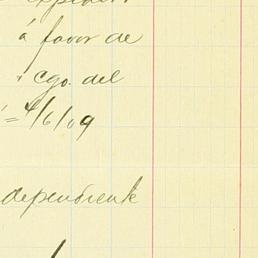 á favor de
cgo. del
4/6/09
dependiente